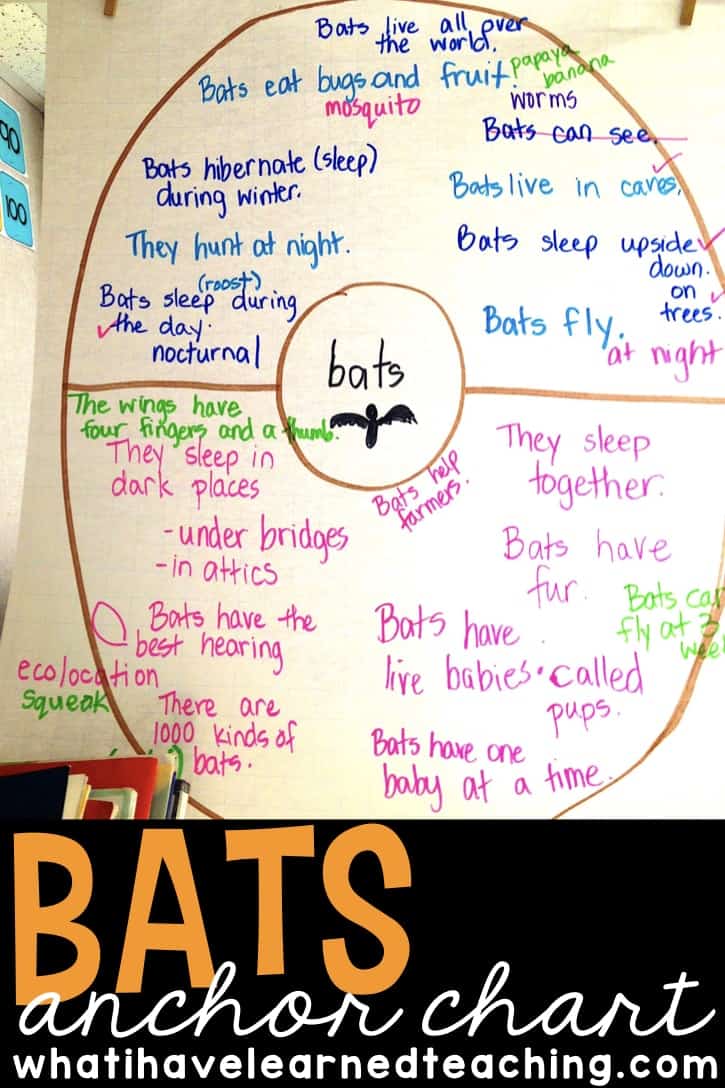 Bats live all over
the world.
Bats eat bugs and fruit.
papaya
banana
mosquito
worms
Bats can see.
Bats hibernate (sleep)
during winter.
Bats live in caves.
They hunt at night.
Bats sleep upside
down.
on
trees.
(roost)
Bats sleep during
the day.
nocturnal
Bats fly.
at night
bats
The wings have
four fingers and a thumb.
They sleep in
dark places
-under bridges
-in attics
Bats help
farmers.
They sleep
together.
Bats have
fur.
Bats can
fly at 3
week
Bats have the
best hearing
ecolocation
squeak
Bats have
live babies. called
pups.
There are
1000 kinds of
bats.
Bats have one
baby at a time.
90
100
BATS
anchor chart
whatihavelearnedteaching.com